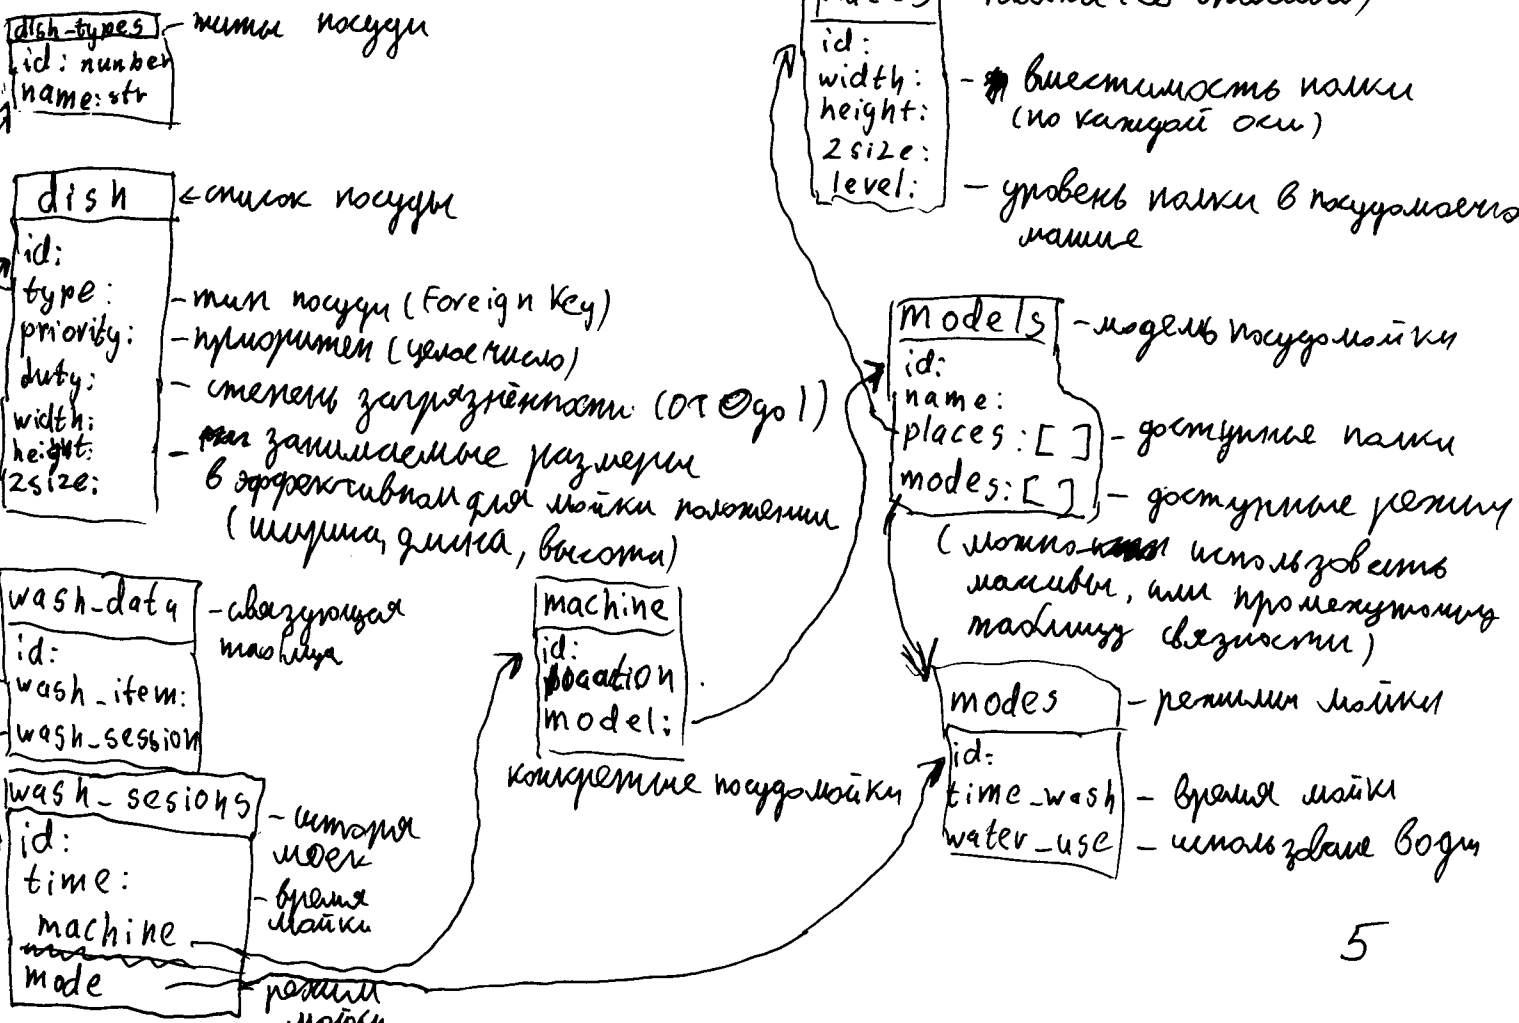 dish-types - типы посуды
id: number
name: str
dish ← список посуды
id:
type: - тип посуды (Foreign Key)
priority: - приоритет (целое число)
duty: - степень загрязнённости (от 0 до 1)
width:
height: - занимаемые размеры
zsize: в эффективном для мойки положении
(ширина, длина, высота)
wash_data - связующая
таблица
id:
wash_item:
wash_session
wash_sesions - история
моек
id:
time: - время
мойки
machine
mode - режим
machine
id:
location
model:
конкретные посудомойки
id:
width: - вместимость полки
height: (по каждой оси)
zsize:
level: - уровень полки в посудомоечно
машине
models - модель посудомойки
id:
name:
places: [ ] - доступные полки
modes: [ ] - доступные режимы
(можно использовать
массивы, или промежуточную
таблицу связности)
modes - режимы мойки
id:
time_wash - время мойки
water_use - использование воды
5